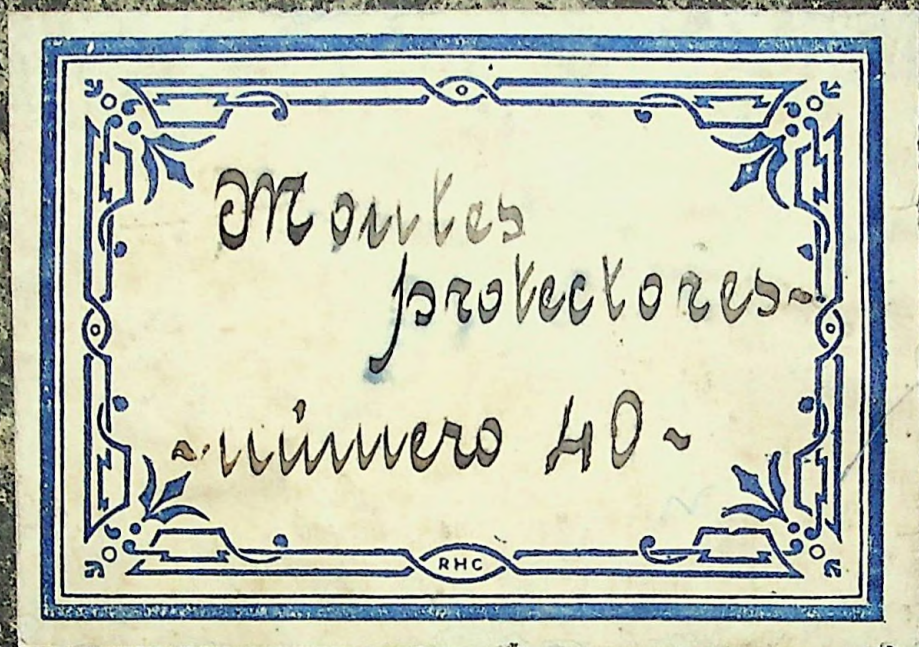 Montes
protectores~
~número 40~
RHC